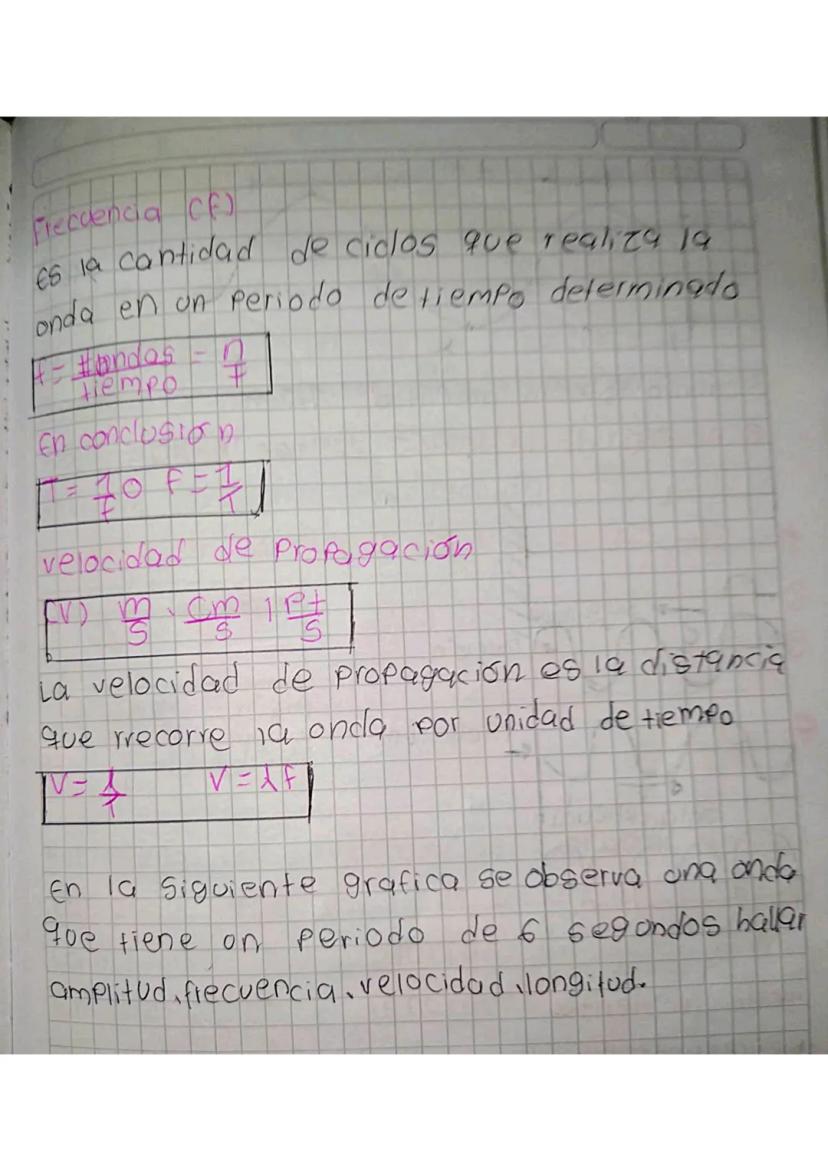 Frecuencia (f)
es la cantidad de ciclos que realiza la
onda en un periodo de tiempo determinado
f = #ondas/tiempo = n/t
En conclusion
T = 1/f o f = 1/T
velocidad de Propagación
(V) m/s, cm/s, pt/s
La velocidad de propagación es la distancia
que rrecorre la onda por unidad de tiempo
V = λ/T V = λf
En la siguiente grafica se observa una onda
que tiene un periodo de 6 segundos hallar
amplitud, frecuencia, velocidad, longitud.